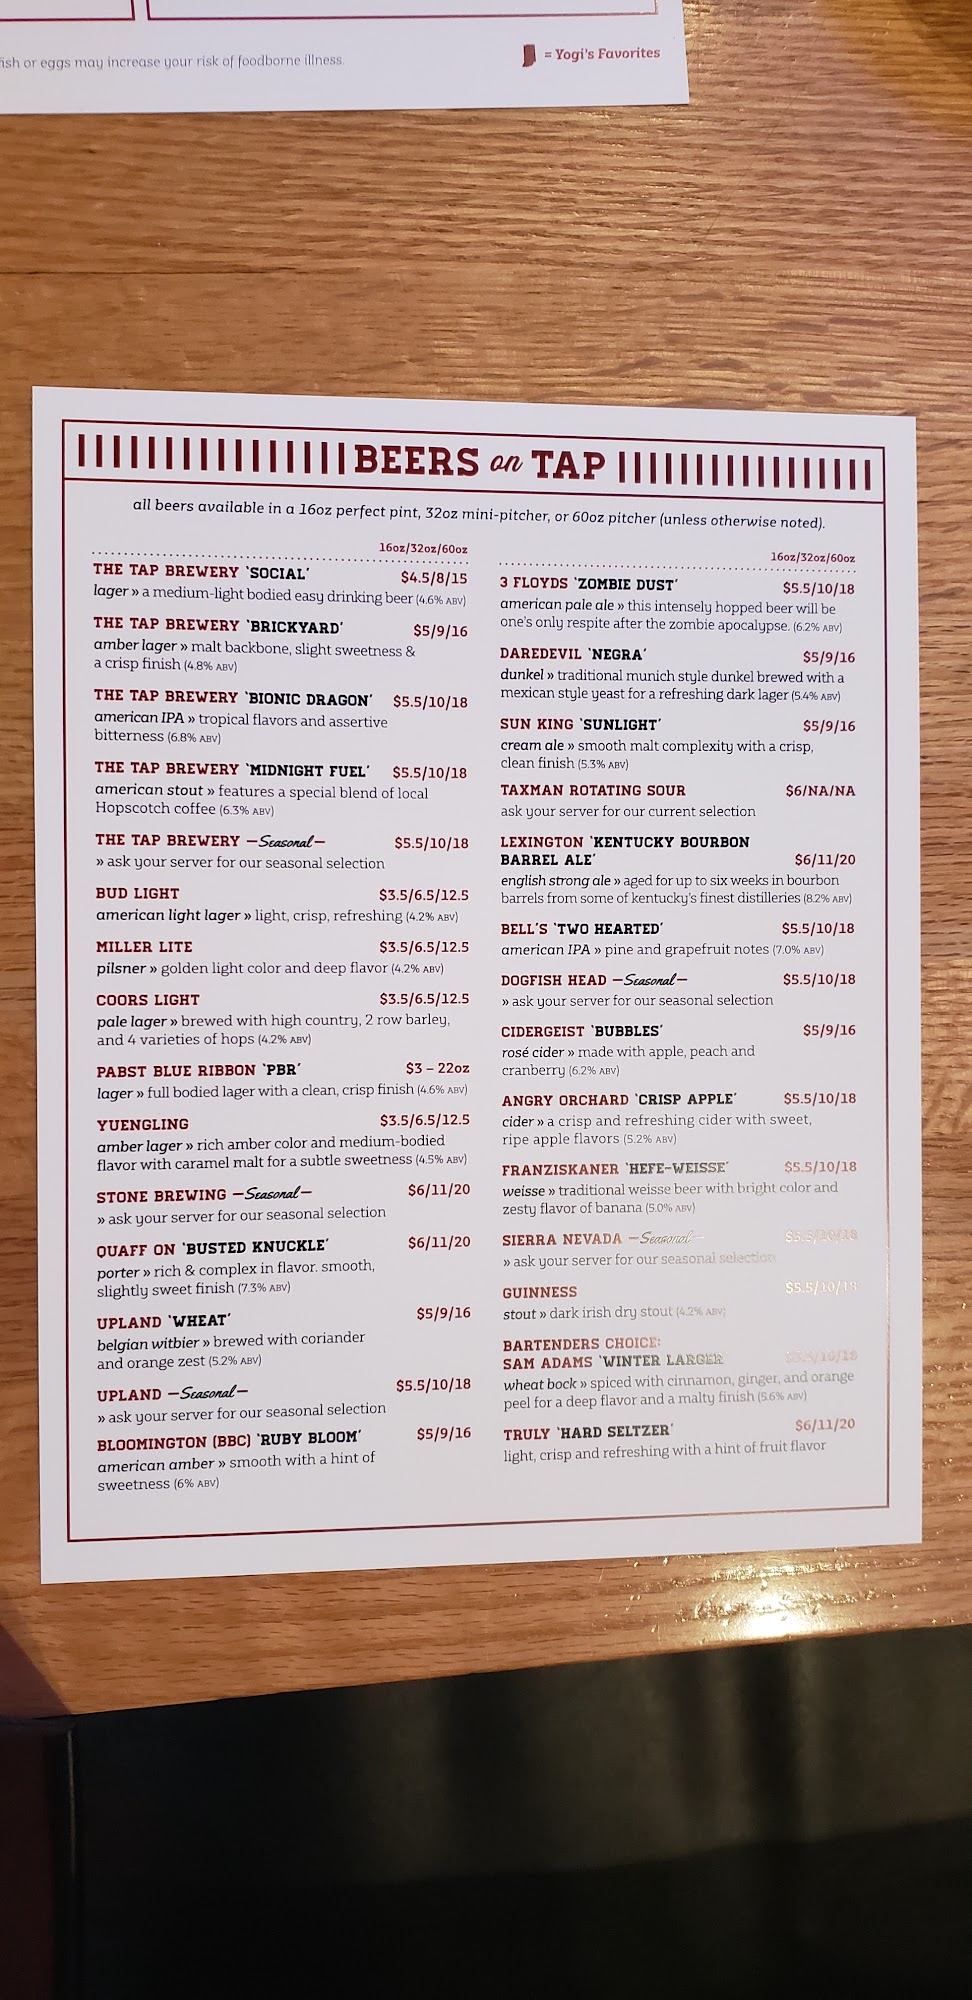 fish or eggs may increase your risk of foodborne illness.
= Yogi's Favorites
BEERS on TAP
all beers available in a 16oz perfect pint, 32oz mini-pitcher, or 60oz pitcher (unless otherwise noted).
16oz/32oz/60oz
THE TAP BREWERY 'SOCIAL' $4.5/8/15
lager » a medium-light bodied easy drinking beer (4.6% ABV)
THE TAP BREWERY 'BRICKYARD' $5/9/16
amber lager » malt backbone, slight sweetness &
a crisp finish (4.8% ABV)
THE TAP BREWERY 'BIONIC DRAGON' $5.5/10/18
american IPA » tropical flavors and assertive
bitterness (6.8% ABV)
THE TAP BREWERY 'MIDNIGHT FUEL' $5.5/10/18
american stout » features a special blend of local
Hopscotch coffee (6.3% ABV)
THE TAP BREWERY —Seasonal— $5.5/10/18
» ask your server for our seasonal selection
BUD LIGHT $3.5/6.5/12.5
american light lager » light, crisp, refreshing (4.2% ABV)
MILLER LITE $3.5/6.5/12.5
pilsner » golden light color and deep flavor (4.2% ABV)
COORS LIGHT $3.5/6.5/12.5
pale lager » brewed with high country, 2 row barley,
and 4 varieties of hops (4.2% ABV)
PABST BLUE RIBBON 'PBR' $3 – 22oz
lager » full bodied lager with a clean, crisp finish (4.6% ABV)
YUENGLING $3.5/6.5/12.5
amber lager » rich amber color and medium-bodied
flavor with caramel malt for a subtle sweetness (4.5% ABV)
STONE BREWING —Seasonal— $6/11/20
» ask your server for our seasonal selection
QUAFF ON 'BUSTED KNUCKLE' $6/11/20
porter » rich & complex in flavor. smooth,
slightly sweet finish (7.3% ABV)
UPLAND 'WHEAT' $5/9/16
belgian witbier » brewed with coriander
and orange zest (5.2% ABV)
UPLAND —Seasonal— $5.5/10/18
» ask your server for our seasonal selection
BLOOMINGTON (BBC) 'RUBY BLOOM' $5/9/16
american amber » smooth with a hint of
sweetness (6% ABV)
16oz/32oz/60oz
3 FLOYDS 'ZOMBIE DUST' $5.5/10/18
american pale ale » this intensely hopped beer will be
one's only respite after the zombie apocalypse. (6.2% ABV)
DAREDEVIL 'NEGRA' $5/9/16
dunkel » traditional munich style dunkel brewed with a
mexican style yeast for a refreshing dark lager (5.4% ABV)
SUN KING 'SUNLIGHT' $5/9/16
cream ale » smooth malt complexity with a crisp,
clean finish (5.3% ABV)
TAXMAN ROTATING SOUR $6/NA/NA
ask your server for our current selection
LEXINGTON 'KENTUCKY BOURBON
BARREL ALE' $6/11/20
english strong ale » aged for up to six weeks in bourbon
barrels from some of kentucky's finest distilleries (8.2% ABV)
BELL'S 'TWO HEARTED' $5.5/10/18
american IPA » pine and grapefruit notes (7.0% ABV)
DOGFISH HEAD —Seasonal— $5.5/10/18
» ask your server for our seasonal selection
CIDERGEIST 'BUBBLES' $5/9/16
rosé cider » made with apple, peach and
cranberry (6.2% ABV)
ANGRY ORCHARD 'CRISP APPLE' $5.5/10/18
cider » a crisp and refreshing cider with sweet,
ripe apple flavors (5.2% ABV)
FRANZISKANER 'HEFE-WEISSE' $5.5/10/18
weisse » traditional weisse beer with bright color and
zesty flavor of banana (5.0% ABV)
SIERRA NEVADA —Seasonal— $5.5/10/18
» ask your server for our seasonal selection
GUINNESS $5.5/10/18
stout » dark irish dry stout (4.2% ABV)
BARTENDERS CHOICE:
SAM ADAMS 'WINTER LARGER'
wheat bock » spiced with cinnamon, ginger, and orange
peel for a deep flavor and a malty finish (5.6% ABV)
TRULY 'HARD SELTZER' $6/11/20
light, crisp and refreshing with a hint of fruit flavor